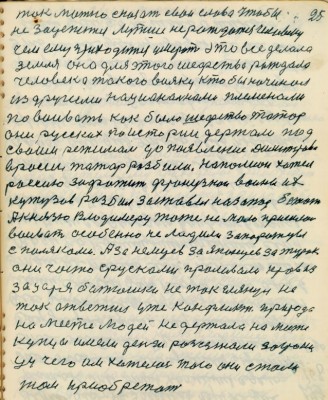 так можно сказат свои слова чтобы 95
не зацепится лутше не рождатся человеку
чем ему приходится умерат это все делала
земля она для этого шедства рождала
человека такого вояку кто бы начинал
из другими националнами племенами
по воивать как было шедство татар
они русских по истории держали под
своим режимам до появление Димитрия
в росии татар разбили. Наполион хотел
россию захватит французкой воина их
кутузов разбил заставил назатог бежат
А князю Владимеру тоже не мало пришлос
воивать особенно че ладили запарожци
с поляками. А за немцев за японцев за турок
они часто срускали проливали кров из
за царя батюшки не так глянул не
так ответил уже канфликт природа
на месте людей не держала на месте
купци имели денги розежали загран
цу чего им хателос того они стали
там приобретат